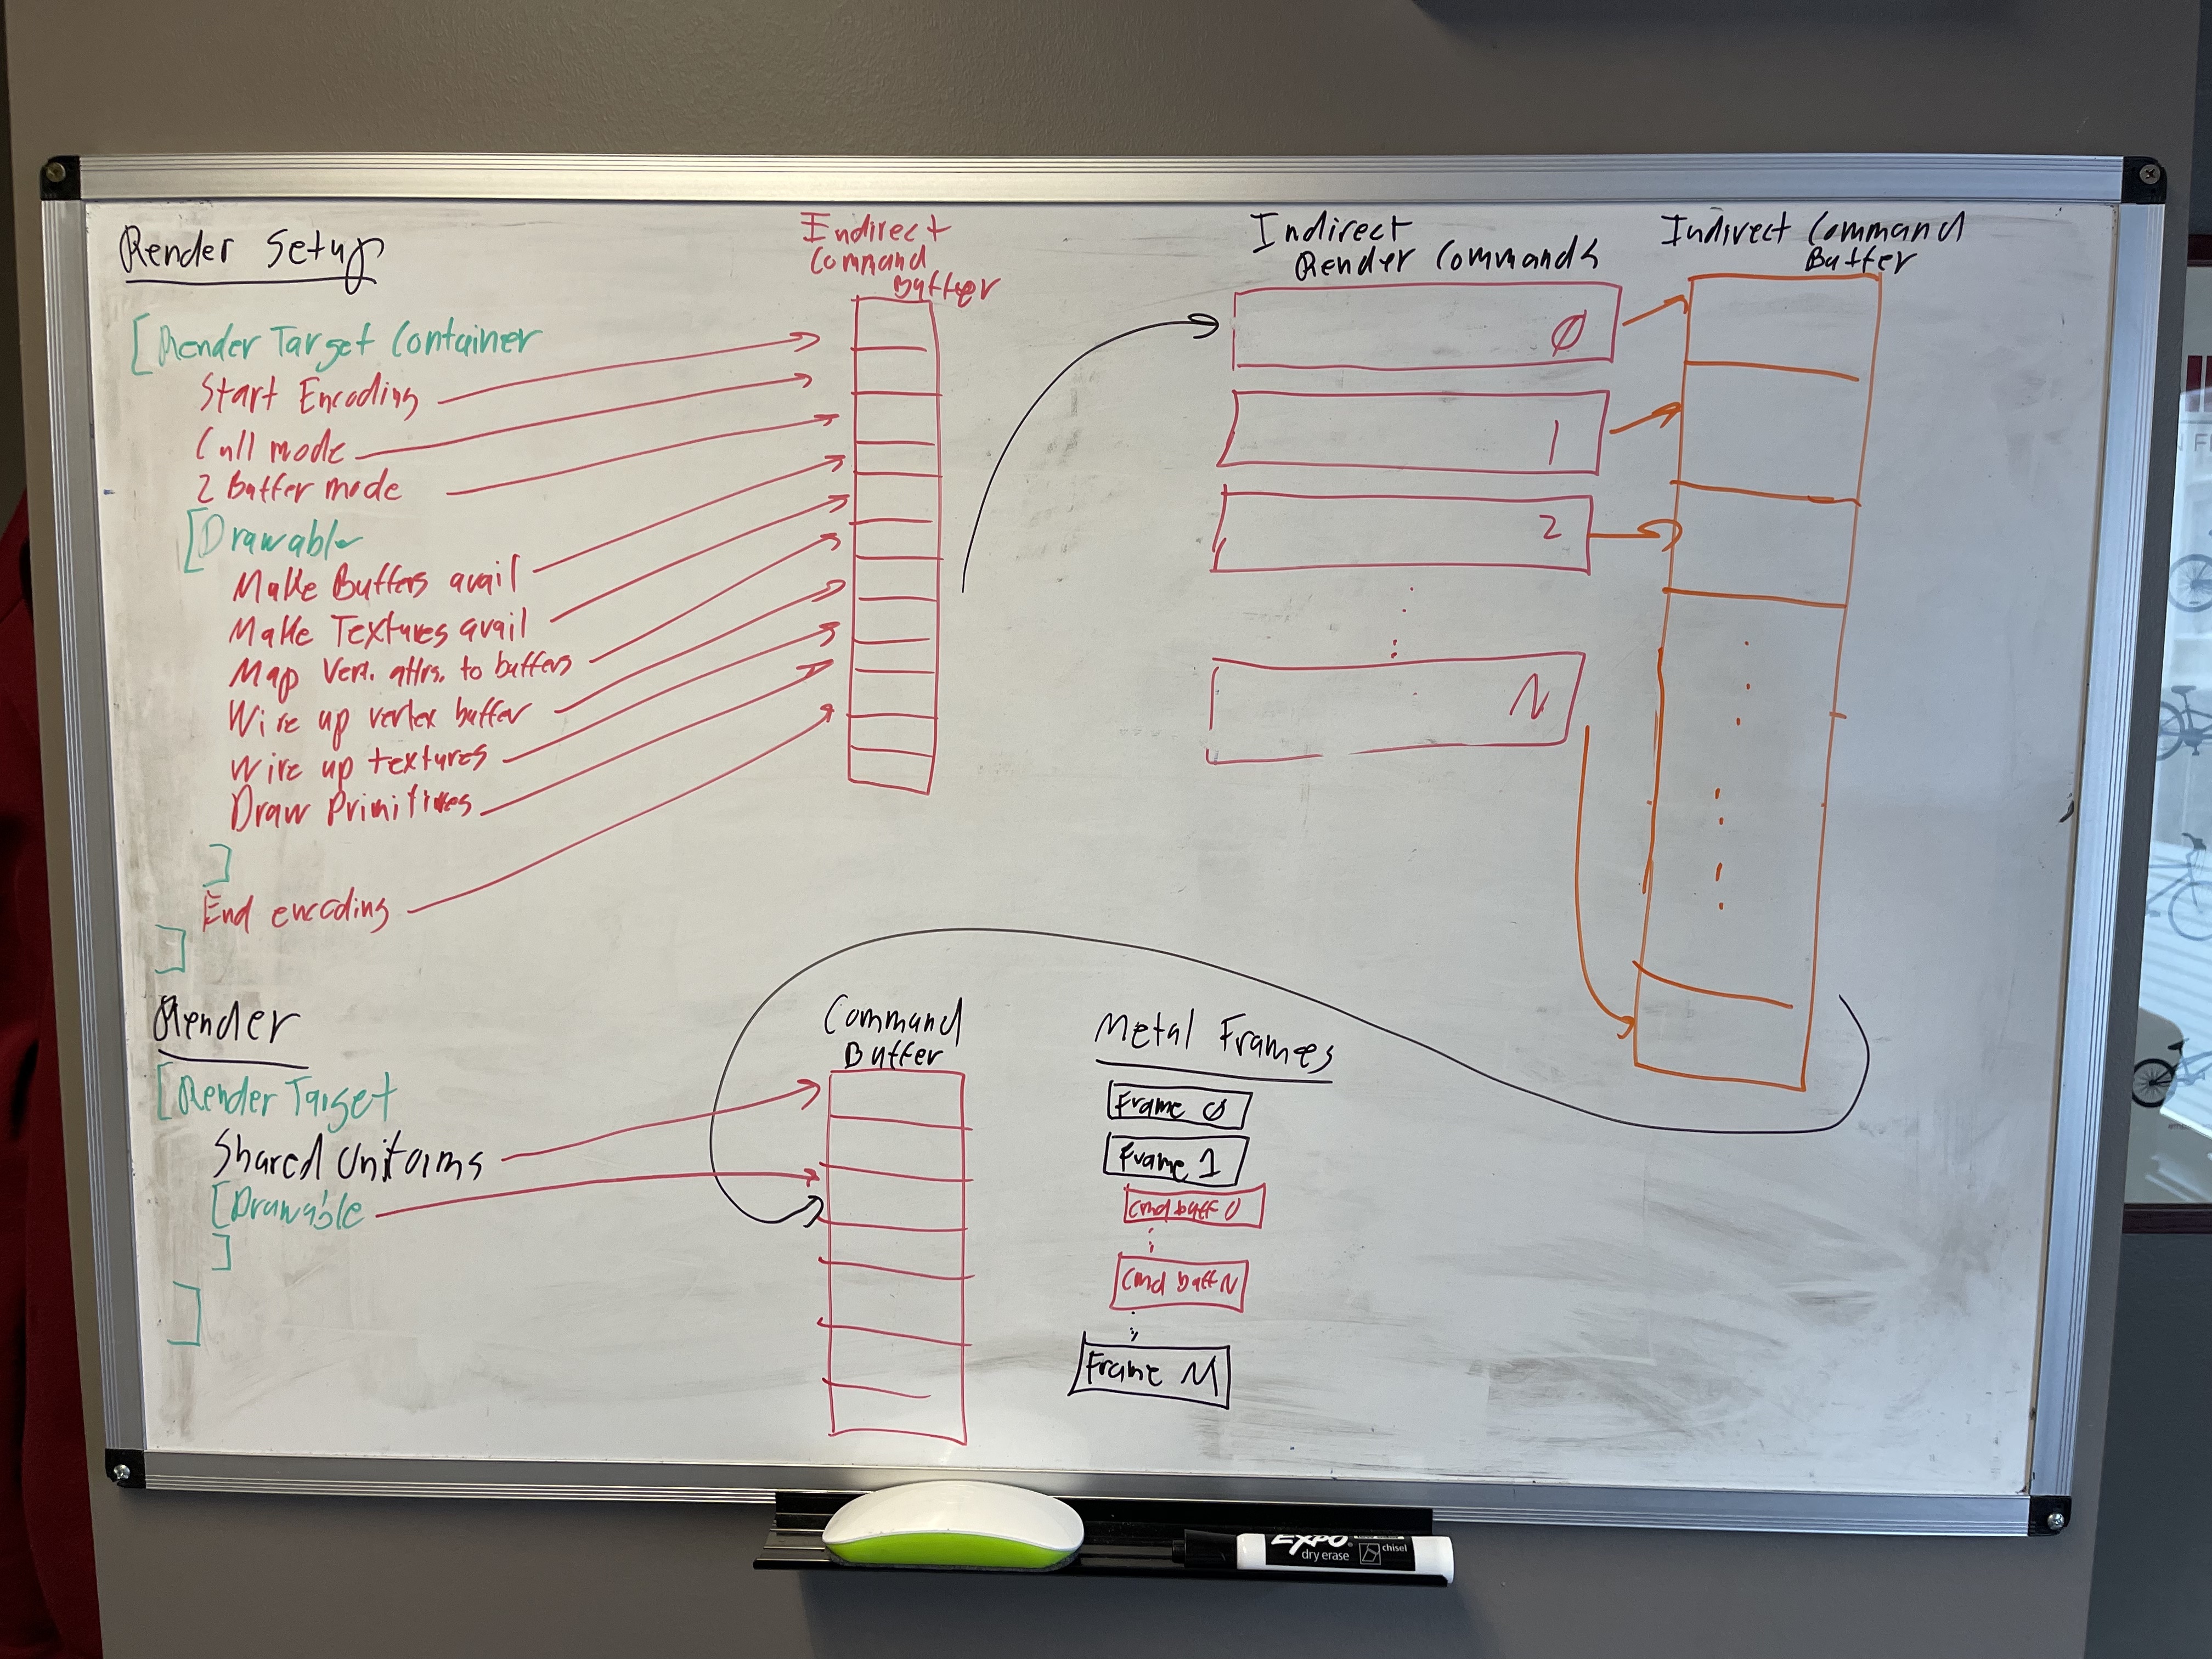 Render Setup
[Render Target Container
Start Encoding
Cull mode
Z Buffer mode
[Drawable
Make Buffers avail
Make Textures avail
Map Vert. attrs. to buffers
Wire up vertex buffer
Wire up textures
Draw Primitives
]
End encoding
]
Indirect
Command
Buffer
Indirect
Render Commands
0
1
2
N
Indirect Command
Buffer
Render
[Render Target
Shared Uniforms
[Drawable
]
]
Command
Buffer
Metal Frames
Frame 0
Frame 1
Cmd buff 0
Cmd buff N
Frame M
EXPO
dry erase
chisel